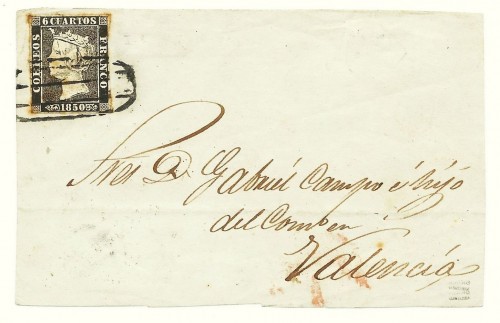 6 CUARTOS
CORREOS
FRANCO
1850
Sres D. Gabriél Campo é hijo
del Com.º en
Valencia